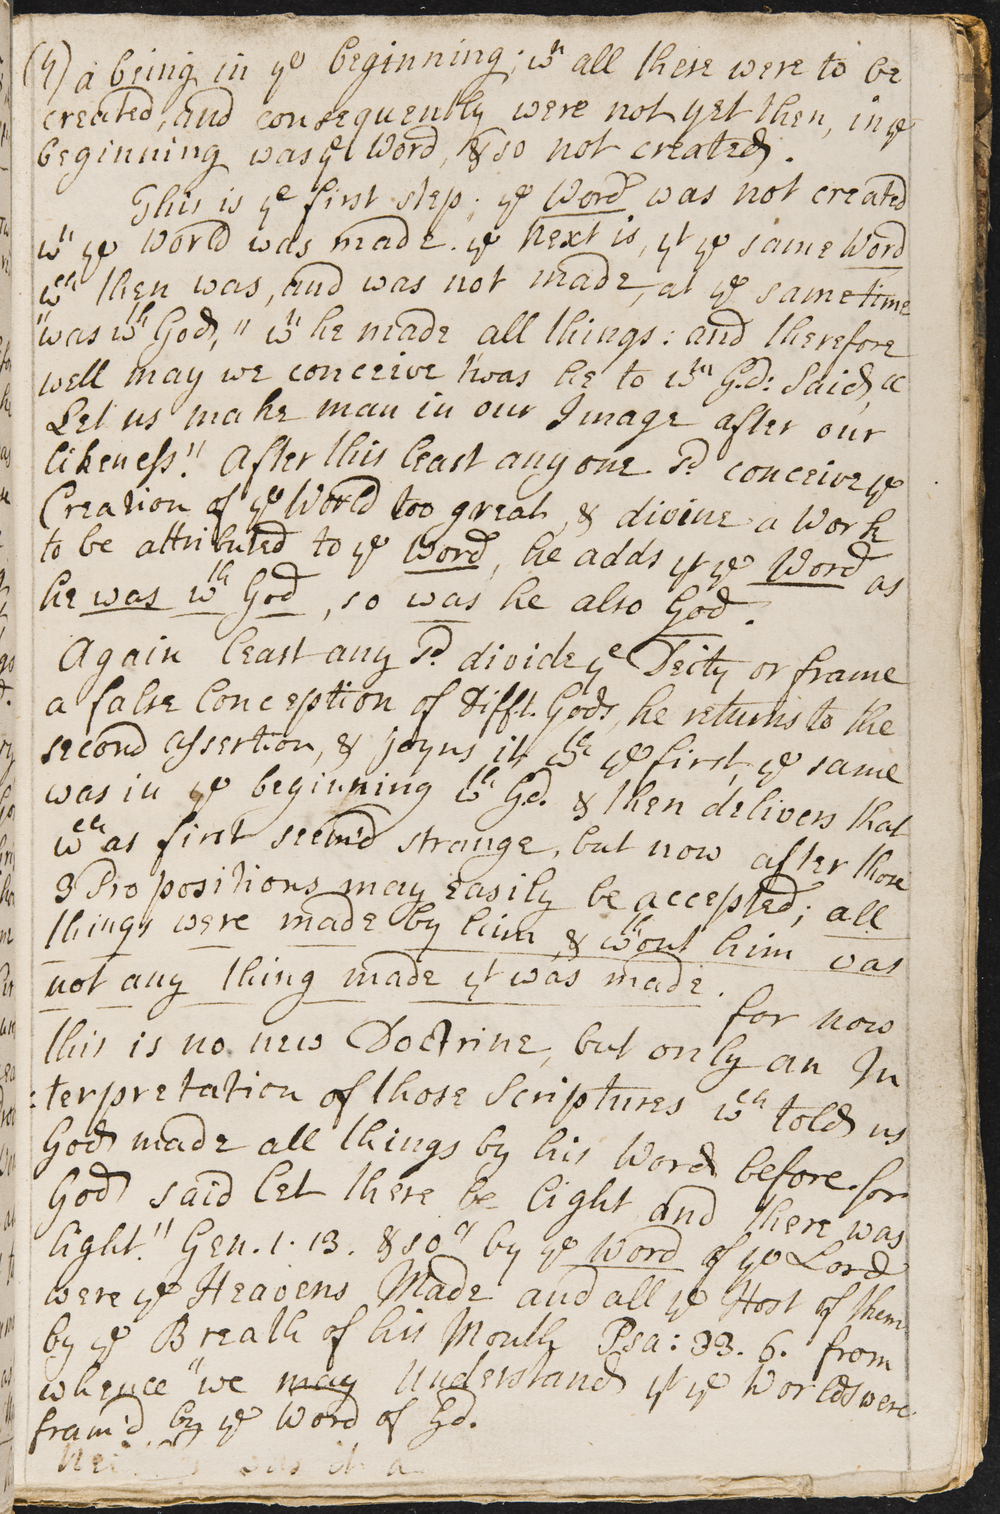 (4) a being in ye beginning; wn all these were to be
created, and consequently were not yet then, in ye
beginning was ye Word, & so not created.
This is ye first step; ye Word was not created
wn ye World was made. ye next is, yt ye same Word
wch then was, and was not made, at ye same time
"was wth God," wn he made all things: and therefore
well may we conceive 'twas he to wm Gd: Said, "
Let us make man in our Image after our
likeness." After this least any one sd conceive ye
Creation of ye World too great, & divine a Work
to be attributed to ye Word, he adds yt ye Word as
he was wth God, so was he also God.
Again least any sd divide ye Deity or frame
a false Conception of difft. Gods, he returns to the
second assertion, & joyns it wth ye first, ye same
was in ye beginning wth Gd. & then delivers that
wch at first seem'd strange, but now after those
3 Propositions may easily be accepted; all
things were made by him & wthout him was
not any thing made yt was made. for now
this is no new Doctrine, but only an In
:terpretation of those Scriptures wch told us
God made all things by his Word before. for
God said let there be light and there was
light." Gen. 1. 13. & so "by ye Word of ye Lord
were ye Heavens Made and all ye Host of them
by ye Breath of his Mouth Psa: 33. 6. from
whence "we may Understand yt ye Worlds were
fram'd by ye Word of Gd.